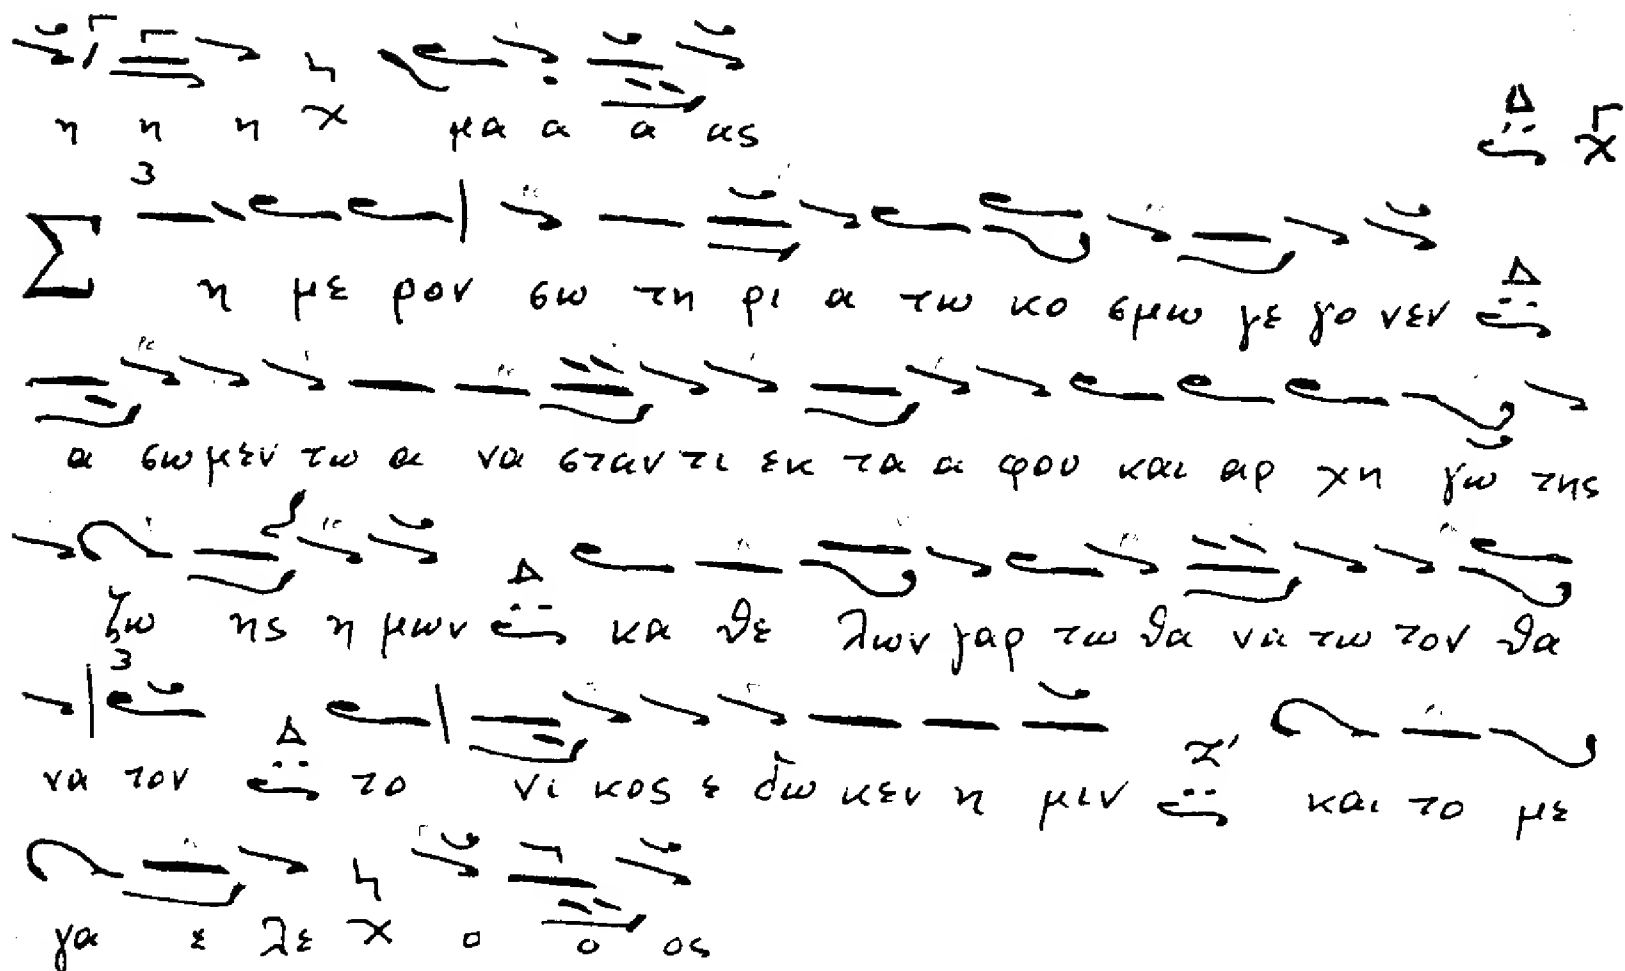 η η η χ μα α α ας
Δ χ
Ση με ρον σω τη ρι α τω κο σμω γε γο νεν Δ
α σω μεν τω α να σταν τι εκ τα α φου και αρ χη γω της
ζω ης η μων Δ κα θε λων γαρ τω θα να τω τον θα
να τον Δ το νι κος ε δω κεν η μιν Ζ' και το με
γα ε λε χ ο ο ος